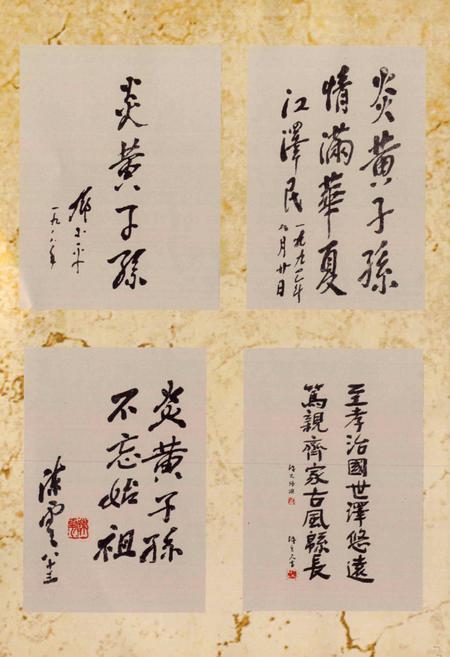 炎黄子孫
鄧小平
一九八八年
炎黄子孫
情滿華夏
江澤民
一九九二年
九月廿日
炎黄子孫
不忘始祖
陳雲
八十三
至孝治國世澤悠遠
篤親齊家古風緜長